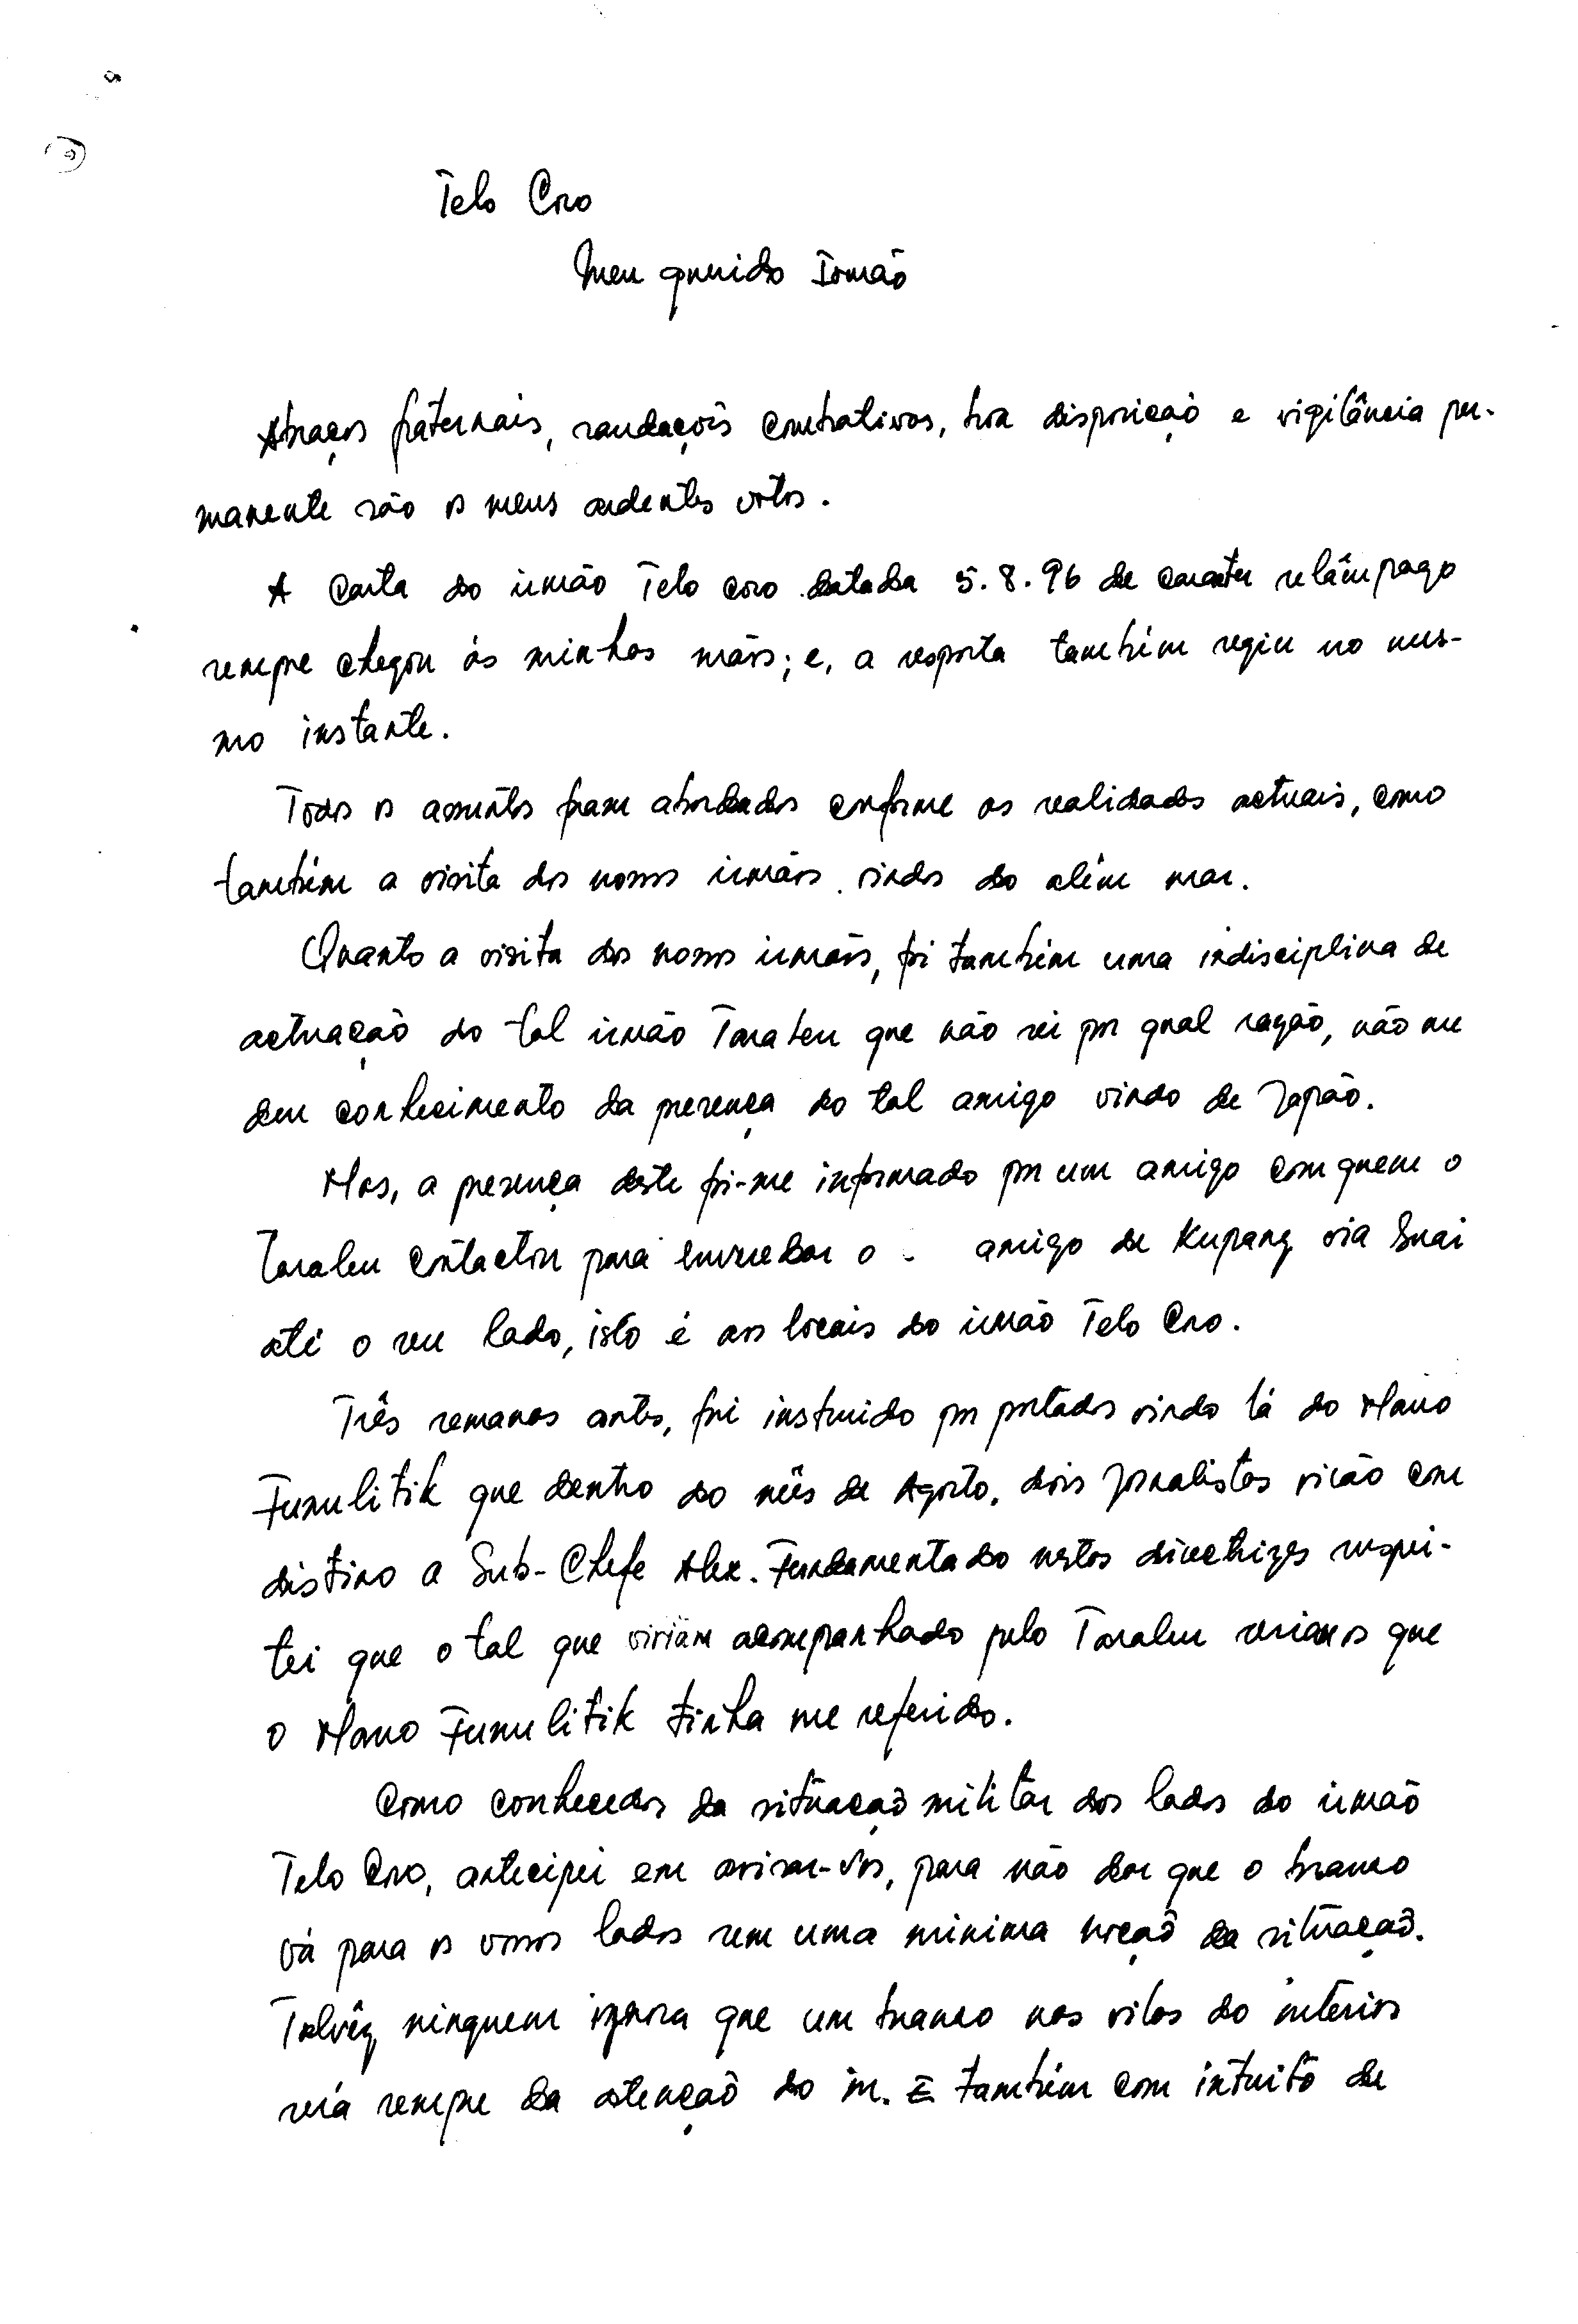 Telo Coro
Meu querido Irmão
Abraços fraternais, saudaçõis combativas, boa disposiçaõ e vigilância per-
manente são os meus ardentes votos.
A carta do irmão Telo Coro datada 5.8.96 de caracter relâmpago
sempre chegou ás minhas mãos; e, a resposta também seguiu no mes-
mo instante.
Todos os assuntos foram abordados conforme as realidades actuais, como
também a visita dos nossos irmãos vindos do além mar.
Quanto a visita dos nossos irmãos, foi também uma indisciplina de
actuação do tal irmão Taraleu que não sei por qual razão, não me
deu conhecimento da presença do tal amigo vindo de Japão.
Mas, a presença deste foi-me informado por um amigo com quem o
Taraleu contactou para o amigo de Kupang via Suai
até o seu lado, isto é aos locais do irmão Telo Coro.
Três semanas antes, fui instruido por portador vindo lá do Mano
Fumulitik que dentro do mês de Agosto, dois Jornalistas virão com
distino a Sub-Chefe Alex. Fundamentado nestas directrizes suspei-
tei que o tal que viriam acompanhado pelo Taraleu seriam os que
o Mano Fumulitik tinha me referido.
Como conhecedor da situaçaõ militar dos lados do irmaõ
Telo Coro, antecipei em avisar-vos, para não dar que o branco
vá para os vossos lados sem uma minima noçaõ da situaçaõ.
Talvêz ninguem ignora que um branco nas vilas do interior
será sempre da atençaõ do in. E também com intuito de